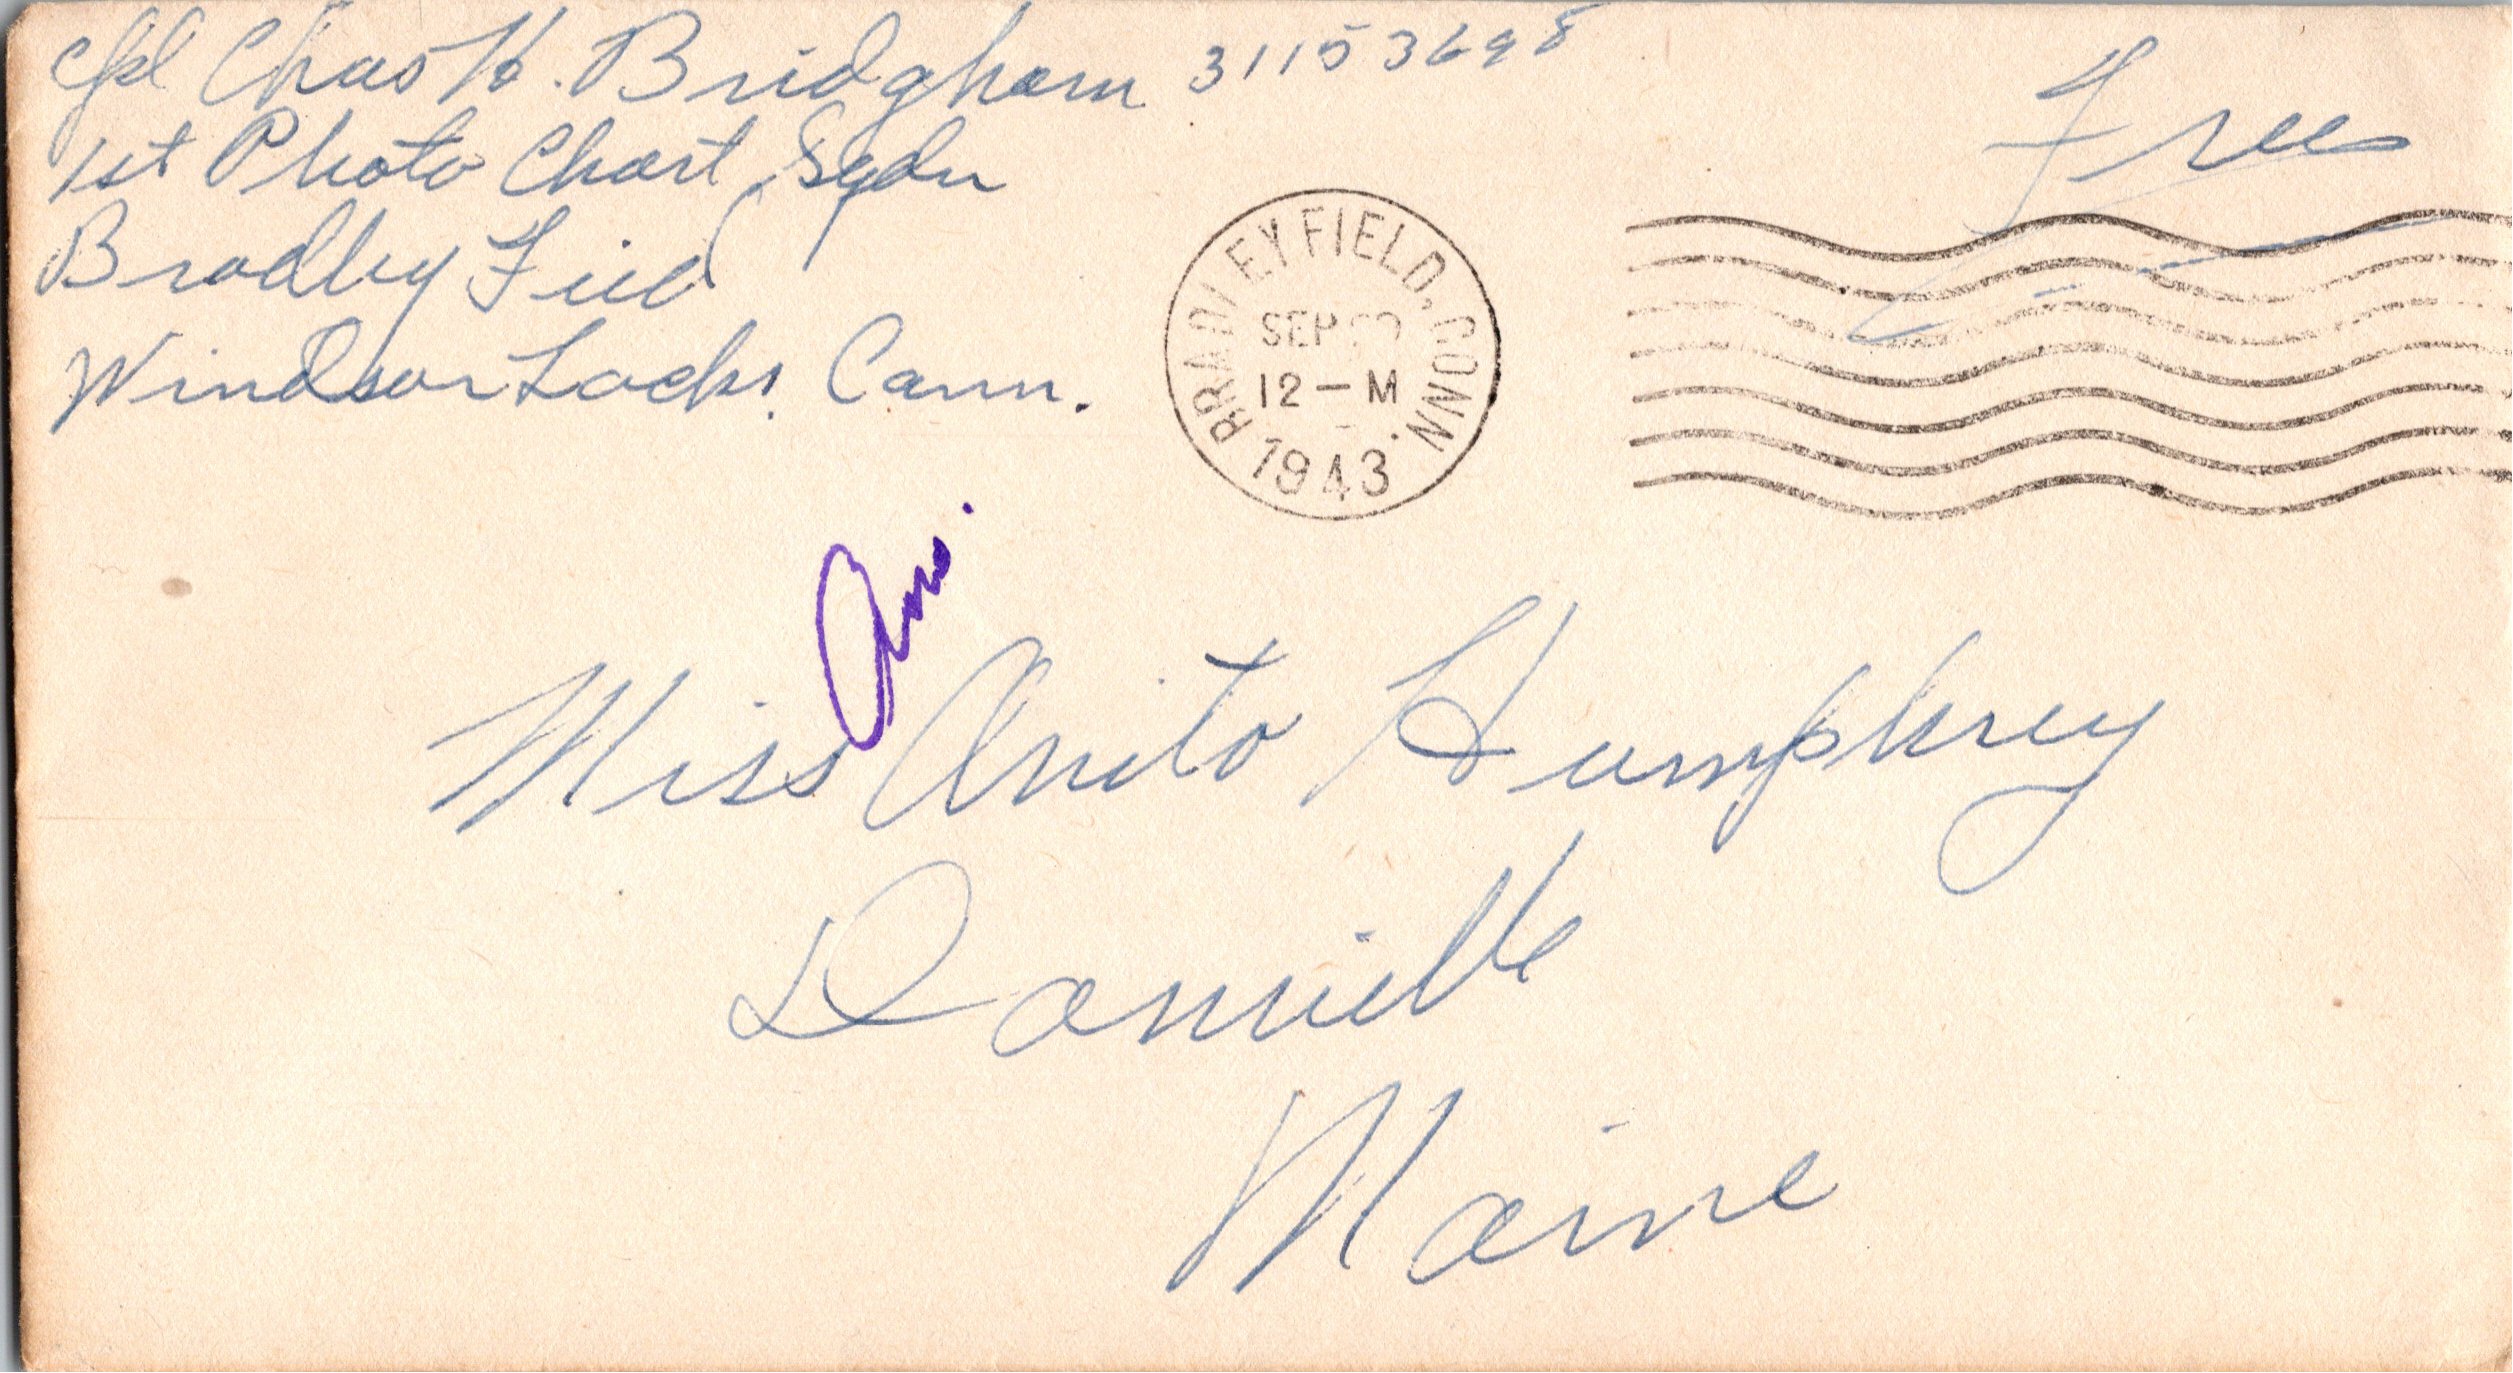 Cpl Chas H. Bridgham 31153698
1st Photo Chart Sqdn
Bradley Field
Windsor Locks, Conn.
Free
BRADLEY FIELD, CONN.
SEP
12 — M
1943
Ans.
Miss Anita Humphrey
Danville
Maine